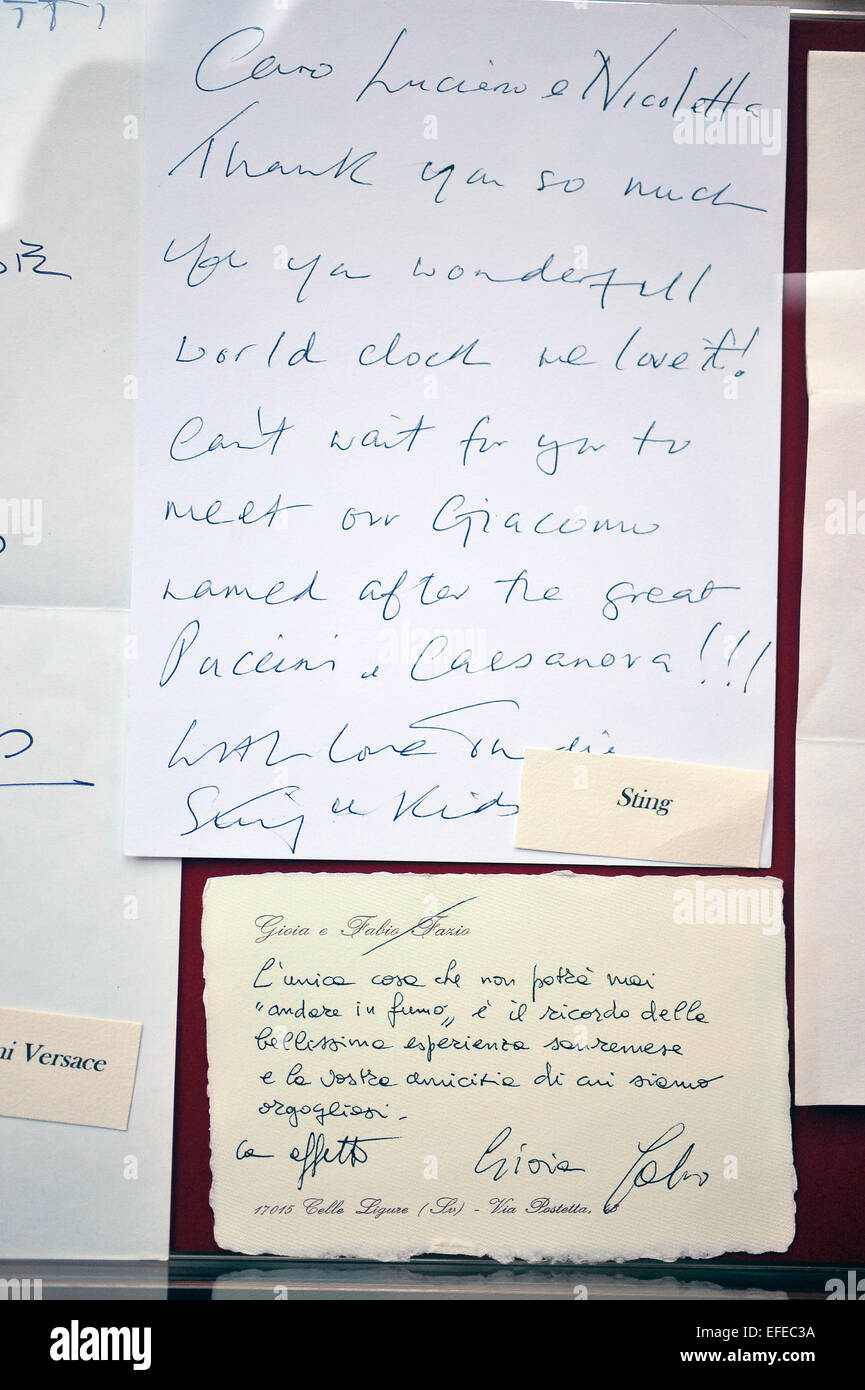 Caro Luciano e Nicoletta
Thank you so much
for you wonderfull
world clock we love it!
Can't wait for you to
meet our Giacomo
named after the great
Puccini e Caesanova!!!
With love Trudie
Sting e Kids
Sting
Gioia e Fabio Fazio
L'unica cosa che non potrà mai
"andare in fumo" è il ricordo della
bellissima esperienza sanremese
e la vostra amicizia di cui siamo
orgogliosi.
con affetto Gioia Fabio
17015 Celle Ligure (Sv) - Via Postetta,
ni Versace
alamy
alamy
Image ID: EFEC3A
www.alamy.com